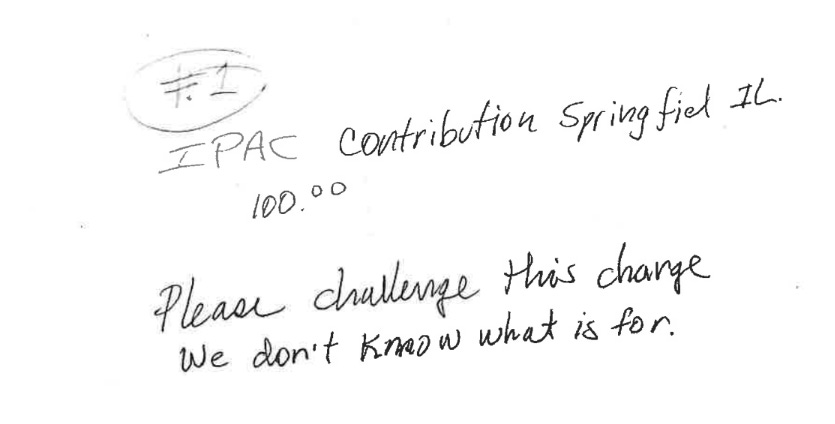 #1
IPAC Contribution Springfiel IL.
100.00
Please challenge this charge
We don't know what is for.